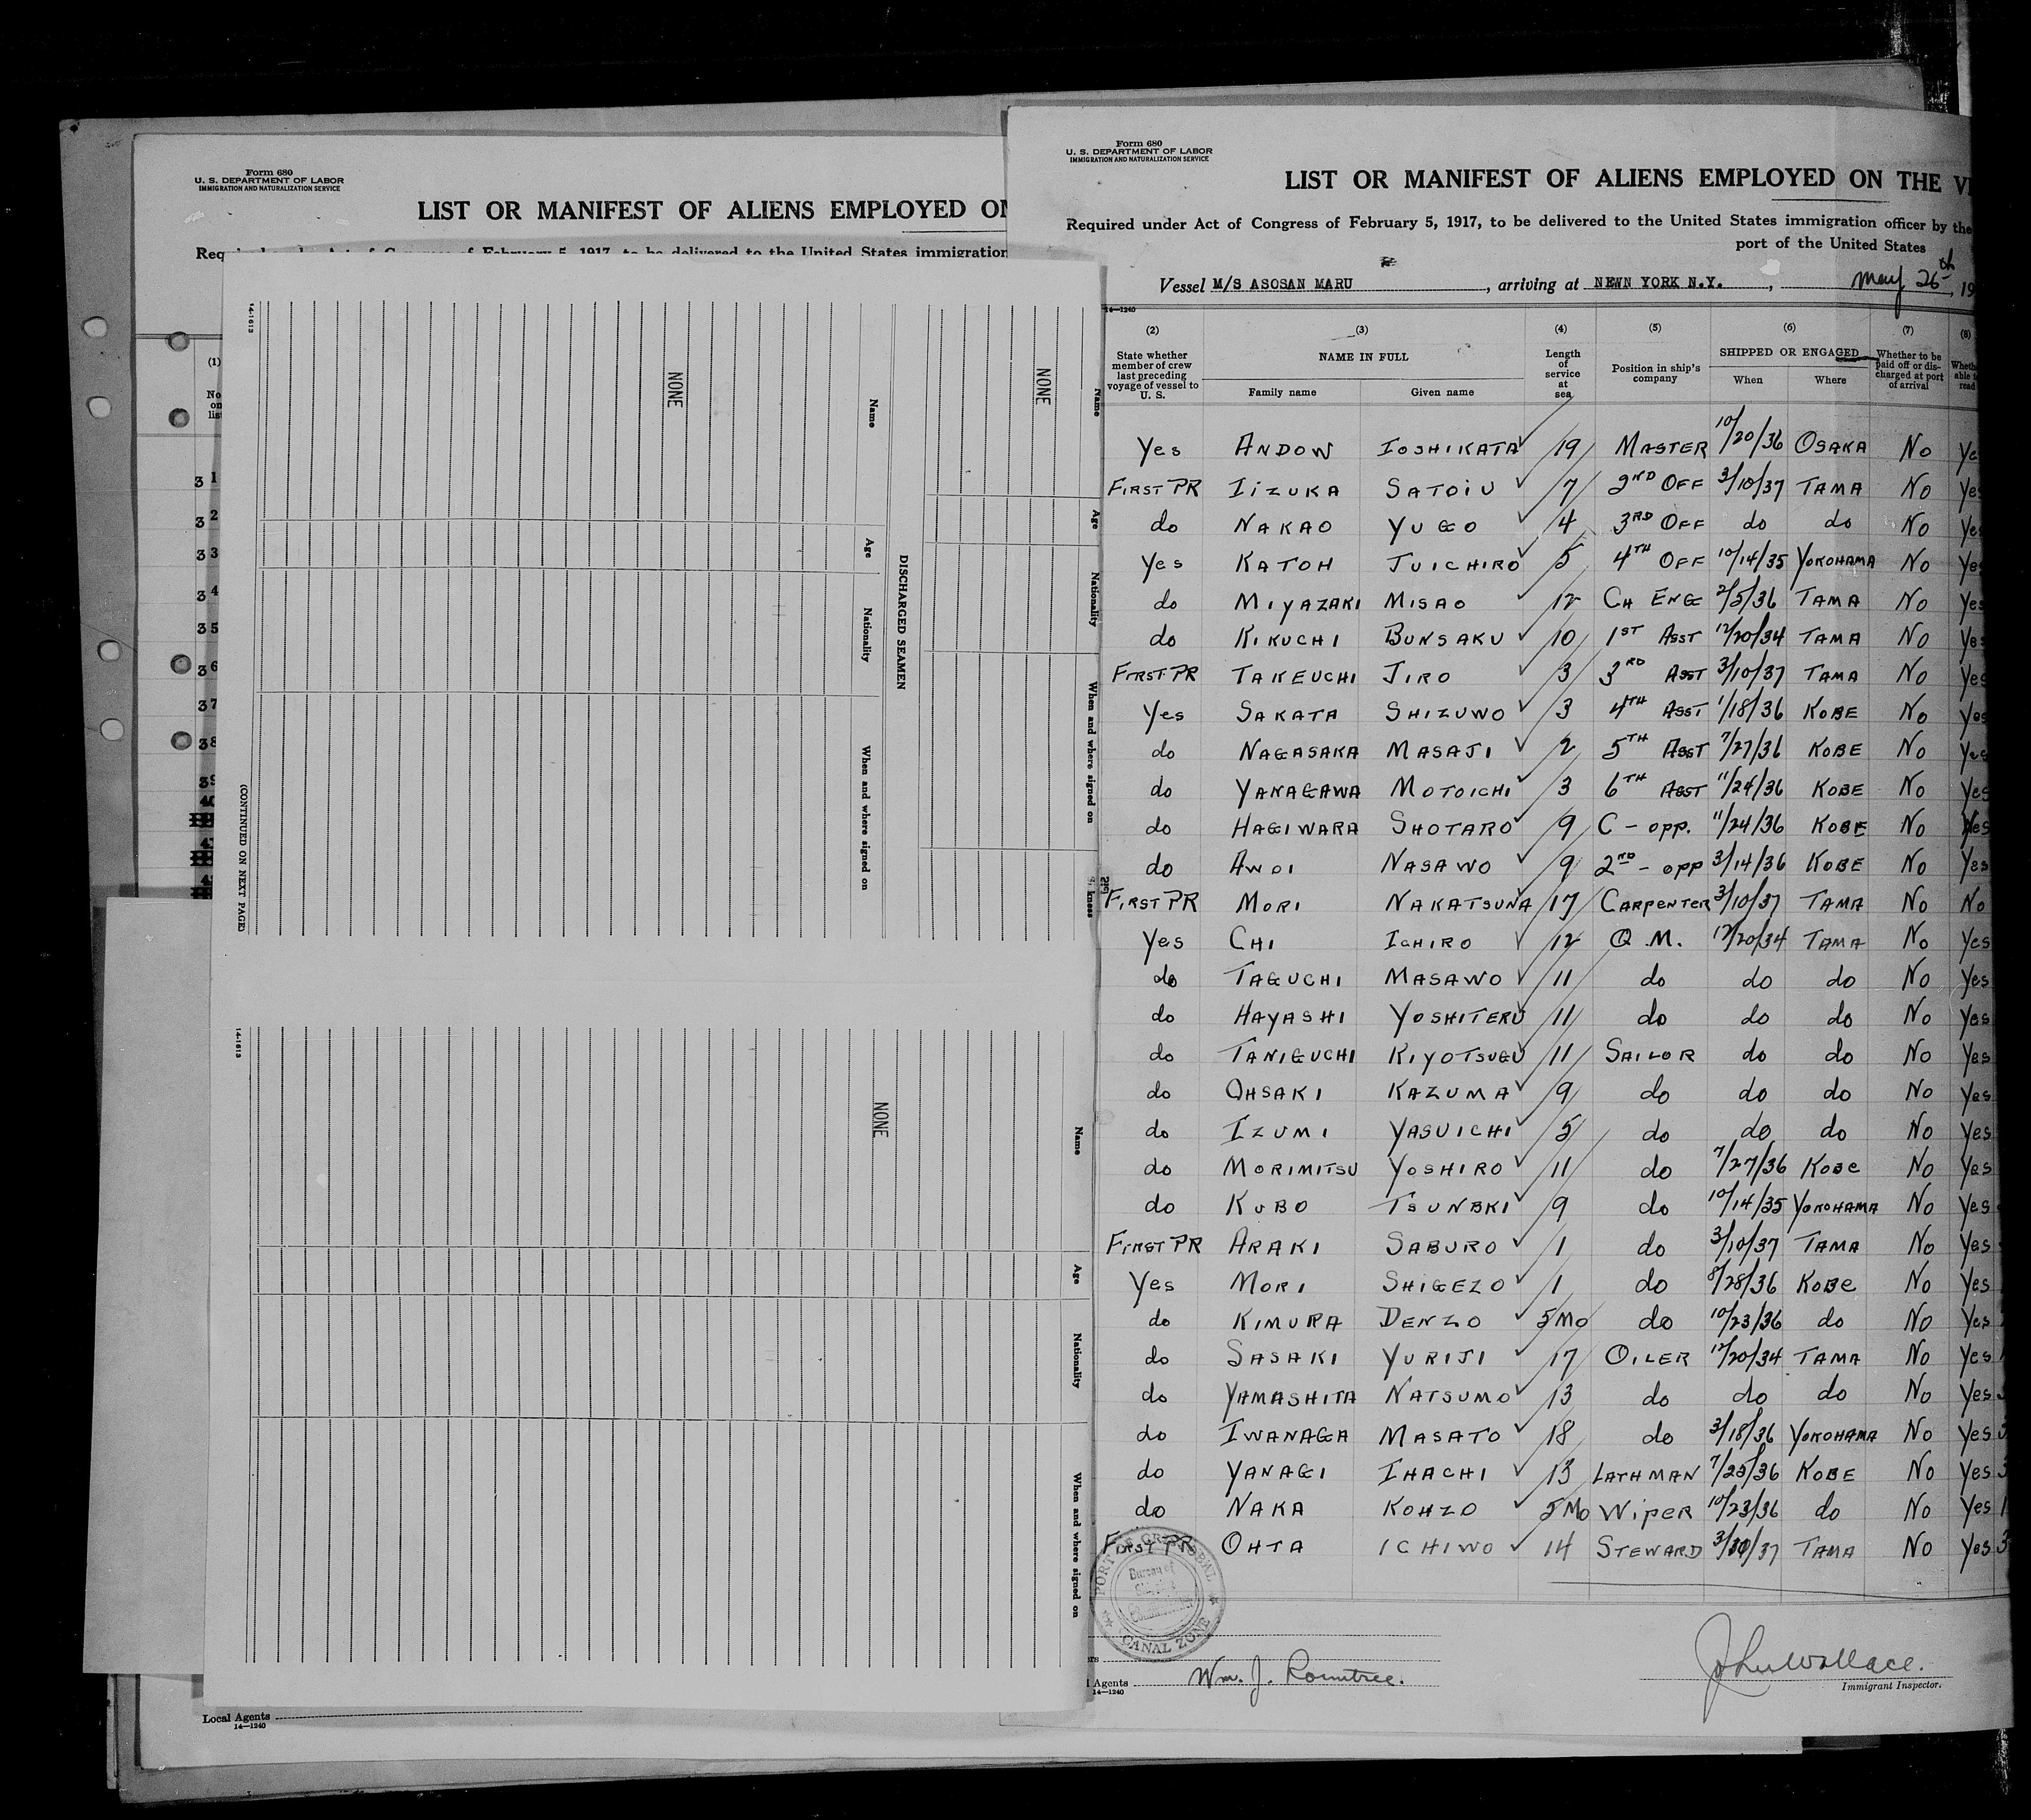 Form 680
U. S. DEPARTMENT OF LABOR
IMMIGRATION AND NATURALIZATION SERVICE
LIST OR MANIFEST OF ALIENS EMPLOYED ON
Required under Act of Congress of February 5, 1917, to be delivered to the United States immigration
(1)
31
32
33
34
35
36
37
38
39
40
14-1613
NONE
Name
Age
Nationality
When and where signed on
DISCHARGED SEAMEN
NONE
Name
Age
Nationality
When and where signed on
(CONTINUED ON NEXT PAGE)
14-1613
NONE
Name
Age
Nationality
When and where signed on
Local Agents
14—1240
Form 680
U. S. DEPARTMENT OF LABOR
IMMIGRATION AND NATURALIZATION SERVICE
LIST OR MANIFEST OF ALIENS EMPLOYED ON THE
Required under Act of Congress of February 5, 1917, to be delivered to the United States immigration officer by the
port of the United States
Vessel M/S ASOSAN MARU, arriving at NEWN YORK N.Y., May 26th, 19
14—1240
(2) (3) (4) (5) (6) (7) (8)
State whether member of crew last preceding voyage of vessel to U. S.
NAME IN FULL
Family name Given name
Length of service at sea
Position in ship's company
SHIPPED OR ENGAGED
When Where
Whether to be paid off or discharged at port of arrival
Yes ANDOW IOSHIKATA 19 MASTER 10/20/36 OSAKA No Ye
FIRST PR IIZUKA SATOIU 7 2ND OFF 3/10/37 TAMA No Yes
do NAKAO YUGO 4 3RD OFF do do No Yes
Yes KATOH JUICHIRO 5 4TH OFF 10/14/35 YOKOHAMA No Yes
do MIYAZAKI MISAO 12 CH ENG 2/5/36 TAMA No Yes
do KIKUCHI BUNSAKU 10 1ST ASST 12/20/34 TAMA No Yes
FIRST PR TAKEUCHI JIRO 3 3RD ASST 3/10/37 TAMA No Yes
Yes SAKATA SHIZUWO 3 4TH ASST 1/18/36 KOBE No Yes
do NAGASAKA MASAJI 2 5TH ASST 7/27/36 KOBE No Yes
do YANAGAWA MOTOICHI 3 6TH ASST 11/24/36 KOBE No Yes
do HAGIWARA SHOTARO 9 C - OPP. 11/24/36 KOBE No Yes
do AWOI NASAWO 9 2ND - OPP 3/14/36 KOBE No Yes
FIRST PR MORI NAKATSUNA 17 CARPENTER 3/10/37 TAMA No No
Yes CHI ICHIRO 12 Q.M. 12/20/34 TAMA No Yes
do TAGUCHI MASAWO 11 do do do No Yes
do HAYASHI YOSHITERU 11 do do do No Yes
do TANIGUCHI KIYOTSUGU 11 SAILOR do do No Yes
do OHSAKI KAZUMA 9 do do do No Yes
do IZUMI YASUICHI 5 do do do No Yes
do MORIMITSU YOSHIRO 11 do 7/27/36 KOBE No Yes
do KUBO TSUNEKI 9 do 10/14/35 YOKOHAMA No Yes
FIRST PR ARAKI SABURO 1 do 3/10/37 TAMA No Yes
Yes MORI SHIGEZO 1 do 8/28/36 KOBE No Yes
do KIMURA DENZO 5 MO do 10/23/36 do No Yes
do SASAKI YURIJI 17 OILER 12/20/34 TAMA No Yes
do YAMASHITA NATSUMO 13 do do do No Yes
do IWANAGA MASATO 18 do 3/18/36 YOKOHAMA No Yes
do YANAGI IHACHI 13 LATHMAN 7/25/36 KOBE No Yes
do NAKA KOHZO 5 MO WIPER 10/23/36 do No Yes
FIRST PR OHTA ICHIWO 14 STEWARD TAMA No Yes
CANAL ZONE
Agents Wm. J. Rountree.
14—1240
John Wallace.
Immigrant Inspector.